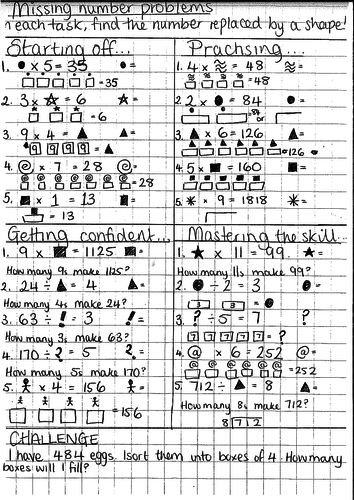 Missing number problems
n each task, find the number replaced by a shape!
Starting off...
1. ● × 5 = 35 ●=
=35
2. 3 × ☆ = 6 ☆=
=6
3. 9 × 4 = ▲ ▲=
9 9 9 9 =▲
4. @ × 7 = 28 @=
=28
5. ■ × 1 = 13 ■=
= 13
Practising...
1. 4 × ≋ = 48 ≋=
=48
2. 2 × ● = 84 ●=
=84
or
3. ▲ × 6 = 126 ▲=
=126
4. 5 × ■ = 160 ■=
5. * × 9 = 1818 *=
Getting confident...
1. 9 × ■ = 1125 ■=
How many 9s make 1125?
2. 24 ÷ ▲ = 4 ▲=
How many 4s make 24?
3. 63 ÷ ! = 3 !=
How many 3s make 63?
4. 170 ÷ ? = 5 ?=
How many 5s make 170?
5. 웃 × 4 = 156 웃=
=156
Mastering the skill...
1. ★ × 11 = 99 ★=
How many 11s make 99?
2. ● ÷ 2 = 3 ●=
3 3 = ●
3. ? ÷ 5 = 7 ?=
7 7 7 7 7 = ?
4. @ × 6 = 252 @=
=252
5. 712 ÷ ▲ = 8 ▲=
How many 8s make 712?
8 712
CHALLENGE
I have 484 eggs. I sort them into boxes of 4. How many
boxes will I fill?